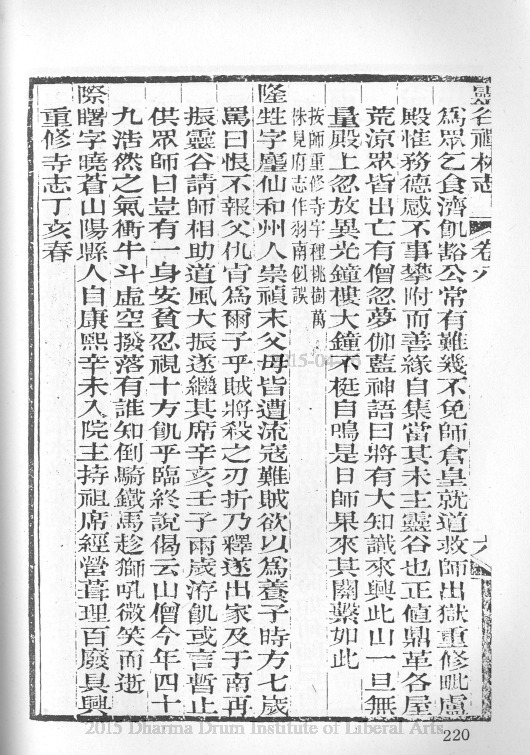 靈谷禪林志　卷八　　十八
爲眾乞食濟飢豁公常有難幾不免師倉皇就道救師出獄重修毗盧
殿惟務德感不事攀附而善緣自集當其未主靈谷也正値鼎革各屋
荒涼眾皆出亡有僧忽夢伽藍神語曰將有大知識來興此山一旦無
量殿上忽放異光鐘樓大鐘不梃自鳴是日師果來其關繫如此
按師重修寺宇種桃樹萬
株見府志作羽南似誤
隆甡字麈仙和州人崇禎末父母皆遭流寇難賊欲以爲養子時方七歲
罵曰恨不報父仇肯爲爾子乎賊將殺之刃折乃釋遂出家及于南再
振靈谷請師相助道風大振遂繼其席辛亥壬子兩歲洊飢或言暫止
供眾師曰豈有一身安貧忍視十方飢乎臨終說偈云山僧今年四十
九浩然之氣衝牛斗虛空撥落有誰知倒騎鐵馬趁獅吼微笑而逝
際曙字曉蒼山陽縣人自康熙辛未入院主持祖席經營葺理百廢具興
重修寺志丁亥春
2015 Dharma Drum Institute of Liberal Arts
220